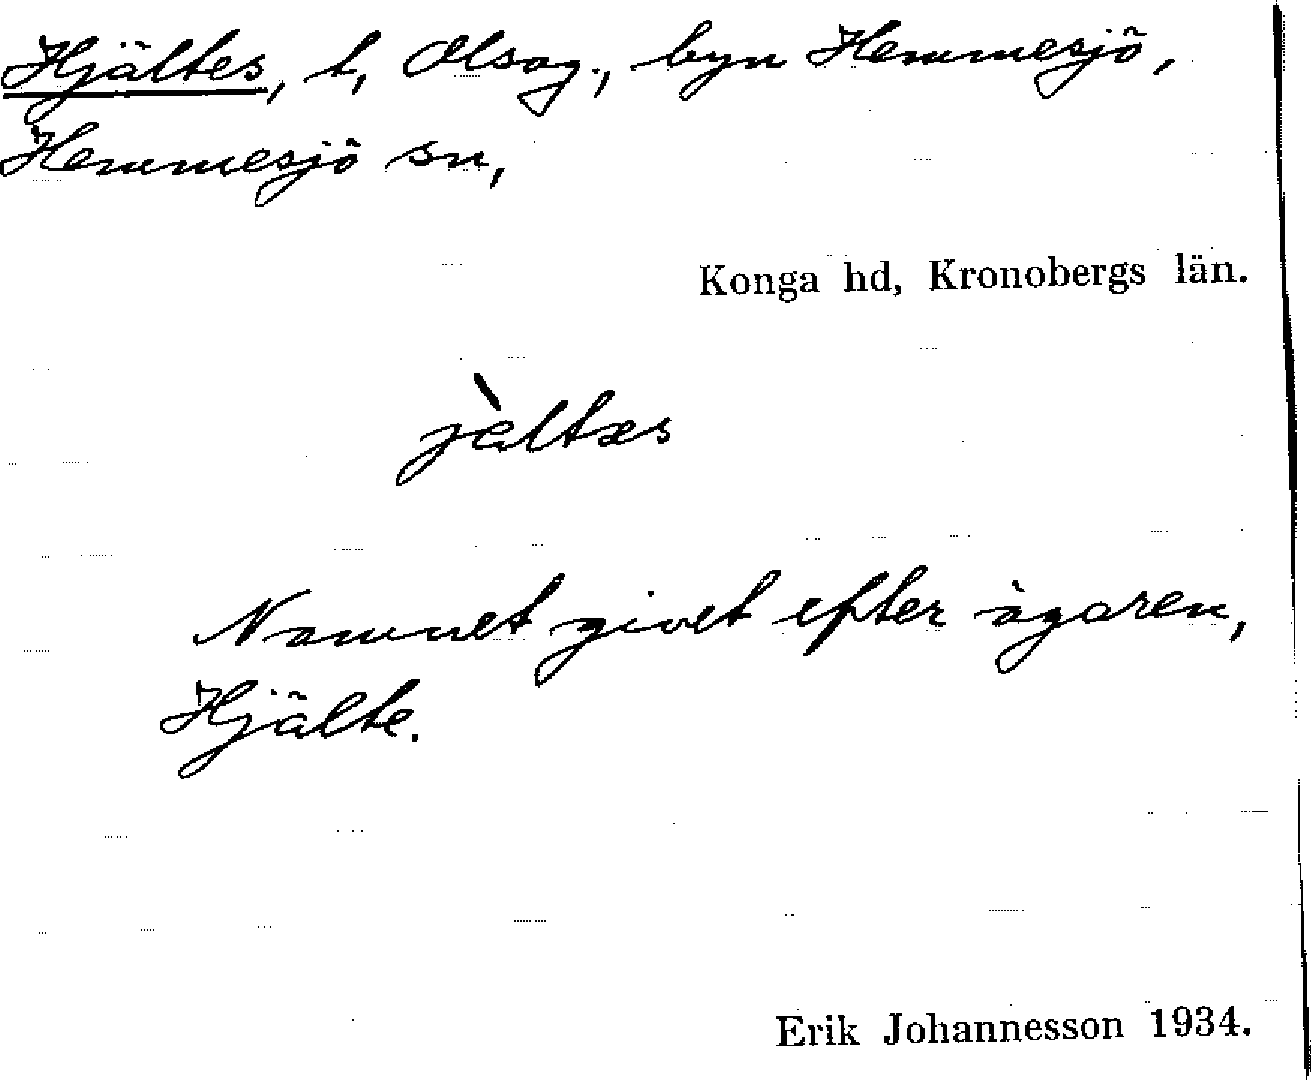 Hjältes, t, Olsag., byn Hemmesjö,
Hemmesjö sn,
Konga hd, Kronobergs län.
jàltæs
Namnet givet efter ägaren,
Hjälte.
Erik Johannesson 1934.